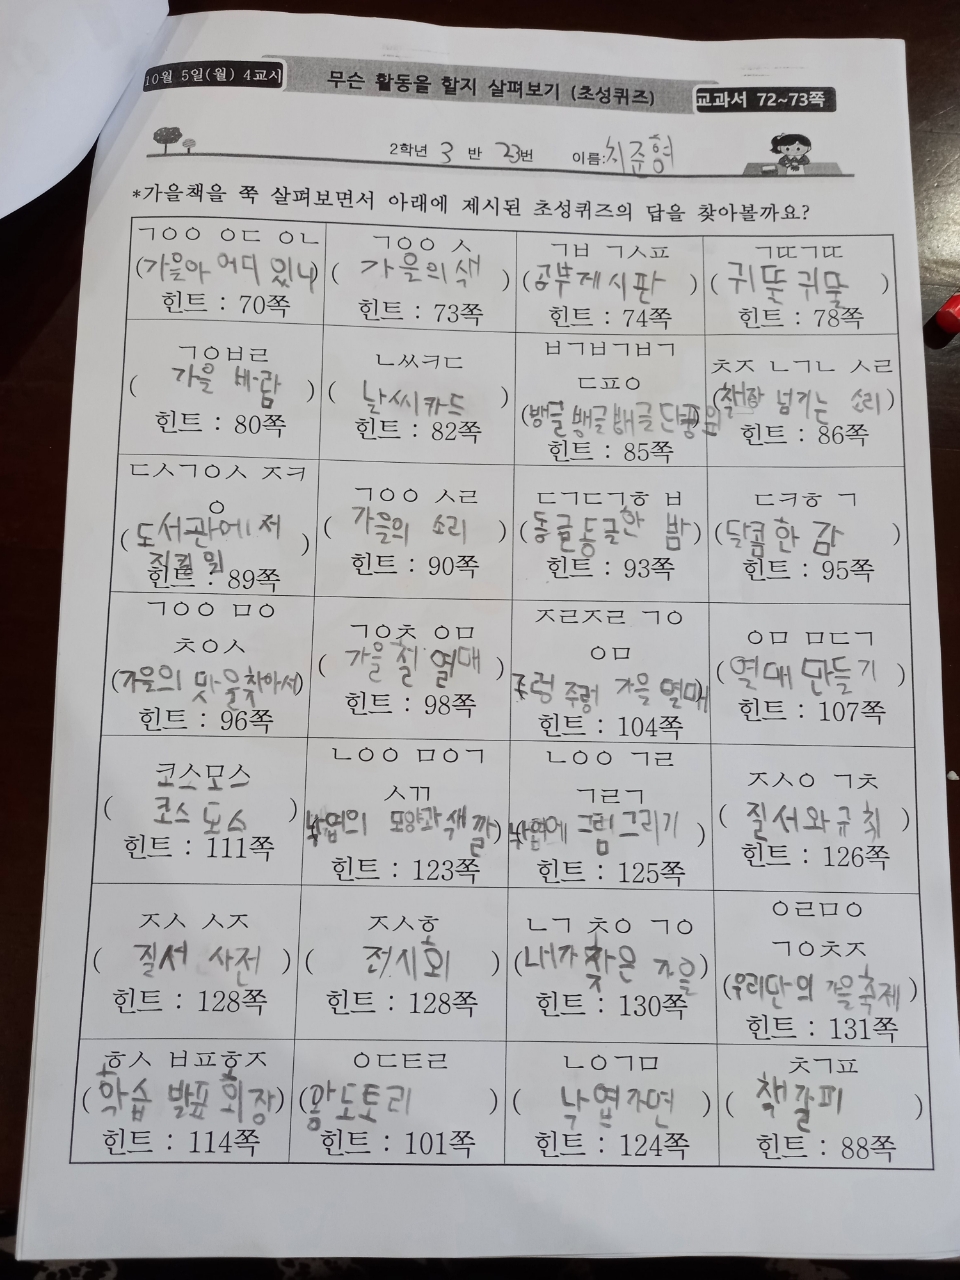 10월 5일(월) 4교시
무슨 활동을 할지 살펴보기 (초성퀴즈)
교과서 72~73쪽
2학년 3 반 23번 이름:최준형
*가을책을 쭉 살펴보면서 아래에 제시된 초성퀴즈의 답을 찾아볼까요?
ㄱㅇㅇ ㅇㄷ ㅇㄴ
(가을아 어디 있니
힌트 : 70쪽
ㄱㅇㅇ ㅅ
( 가을의색 )
힌트 : 73쪽
ㄱㅂ ㄱㅅㅍ
(공부게시판 )
힌트 : 74쪽
ㄱㄸㄱㄸ
( 귀뚤귀뚤 )
힌트 : 78쪽
ㄱㅇㅂㄹ
( 가을 바람 )
힌트 : 80쪽
ㄴㅆㅋㄷ
( 날씨카드 )
힌트 : 82쪽
ㅂㄱㅂㄱㅂㄱ
ㄷㅍㅇ
(뱅글뱅글뱅글단풍잎
힌트 : 85쪽
ㅊㅈ ㄴㄱㄴ ㅅㄹ
(책장 넘기는 소리)
힌트 : 86쪽
ㄷㅅㄱㅇㅅ ㅈㅋ
ㅇ
( 도서관에저 )
지킬일
힌트 : 89쪽
ㄱㅇㅇ ㅅㄹ
( 가을의 소리 )
힌트 : 90쪽
ㄷㄱㄷㄱㅎ ㅂ
(동글동글한 밤)
힌트 : 93쪽
ㄷㅋㅎ ㄱ
(달콤한 감 )
힌트 : 95쪽
ㄱㅇㅇ ㅁㅇ
ㅊㅇㅅ
(가을의 맛을찾아서)
힌트 : 96쪽
ㄱㅇㅊ ㅇㅁ
( 가을철 열매 )
힌트 : 98쪽
ㅈㄹㅈㄹ ㄱㅇ
ㅇㅁ
주렁 주렁 가을 열매
힌트 : 104쪽
ㅇㅁ ㅁㄷㄱ
(열매만들기 )
힌트 : 107쪽
코스모스
( 코스모스 )
힌트 : 111쪽
ㄴㅇㅇ ㅁㅇㄱ
ㅅㄲ
낙엽의 모양과색깔)
힌트 : 123쪽
ㄴㅇㅇ ㄱㄹ
ㄱㄹㄱ
낙엽에 그림그리기 )
힌트 : 125쪽
ㅈㅅㅇ ㄱㅊ
( 질서와규칙 )
힌트 : 126쪽
ㅈㅅ ㅅㅈ
( 질서 사전 )
힌트 : 128쪽
ㅈㅅㅎ
( 전시회 )
힌트 : 128쪽
ㄴㄱ ㅊㅇ ㄱㅇ
(내가찾은 가을)
힌트 : 130쪽
ㅇㄹㅁㅇ
ㄱㅇㅊㅈ
(우리만의 가을축제 )
힌트 : 131쪽
ㅎㅅ ㅂㅍㅎㅈ
(학습 발표회장)
힌트 : 114쪽
ㅇㄷㅌㄹ
(옴도토리 )
힌트 : 101쪽
ㄴㅇㄱㅁ
( 낙엽가면 )
힌트 : 124쪽
ㅊㄱㅍ
( 책갈피 )
힌트 : 88쪽